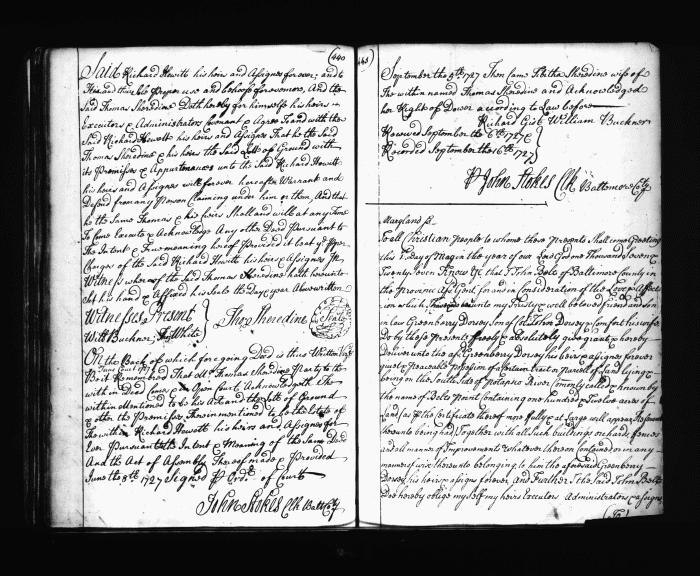 440
Said Richard Hewett his heirs and Assignes forever; and to
his and their Sole proper use and behoofe forevermore, And the
Said Thomas Sheredine Doth hereby for himselfe his heirs
Executors & Administrators Covenant & Agree to and with the
Said Richard Hewett his heirs and Assigns That he the Said
Thomas Sheredine & his heirs the said Lott of Ground with
its Premises & Appurtenances unto the Said Richard Hewett
his heirs and Assignes will forever hereafter Warrant and
Defend from any Person Claiming under him or them, And that
he the Same Thomas & his heirs Shall and will at any time
To Come Execute & Acknowledge Any other Deed Pursuant to
The Intent & True meaning hereof Provided it be at the
Charges of the Said Richard Hewett his heirs & Assignes In
Witness whereof the said Thomas Sheredine hath hereunto
Set his hand & Affixed his Seale the Day & year Above written
Witnesses Present
Wm Buckner,      White
Thos Sheredine
Seale
On the Back of which foregoing Deed is thus Written Vizt
June Court 1727
Be it Remembred That Mr Thomas Sheredine Party to the
within Deed Came in Open Court, Acknowledged the
within Mentioned to be his Act and the Lott of Ground
& other the Premises Therein mentioned to be the Estate of
The within Richard Hewett his heirs and Assignes for
Ever Pursuant to the Intent & Meaning of the Same Deed
And the Act of Assembly Thereof made & Provided
June the 8th 1727 Signed P Ordr of Court
John Stokes Clk Balt Coty
September the 5th 1727 Then Came Tabitha Sheredine wife of
The within named Thomas Sheredine and Acknowledged
her Right of Dower according to Law before
Richard Gist William Buckner
Received September the 6th 1727 &
Recorded September the 16th 1727
P John Stokes Clk Baltemore Coty
Maryland ss
To all Christian People to whome these Presents Shall come Greeting
this Day of May in the year of our Lord God one Thousand Seven
Twenty seven Know Ye that I John Belt of Baltimore County in
the Province Afsd Gent for and in Consideration of the Love & Affect
ion which I have & bear unto my Trusty & well beloved friend and son
in law Greenberry Dorsey Son of Col John Dorsey
Do by these Presents freely & absolutely give grant & hereby
Deliver unto the sd Greenberry Dorsey his heirs & assignes forever
quiet & peaceable possession of a certain tract or parcell of Land lying &
being on the South side of Patapsco River Comonly called & known by
the name of Belts Point Containing one hundred & Twelve acres of
Land (as by the Certificate thereof more fully & at Large will appear
thereunto being had) Together with all such buildings orchards fences
and all manner of Improvements whatsoever thereon Contained or in any
manner of wise thereunto belonging to him the aforesaid Greenberry
Dorsey his heirs & assignes forever, and Further I the Said John Belt
Doe hereby oblige my self my heirs Executors Administrators & assigns
To